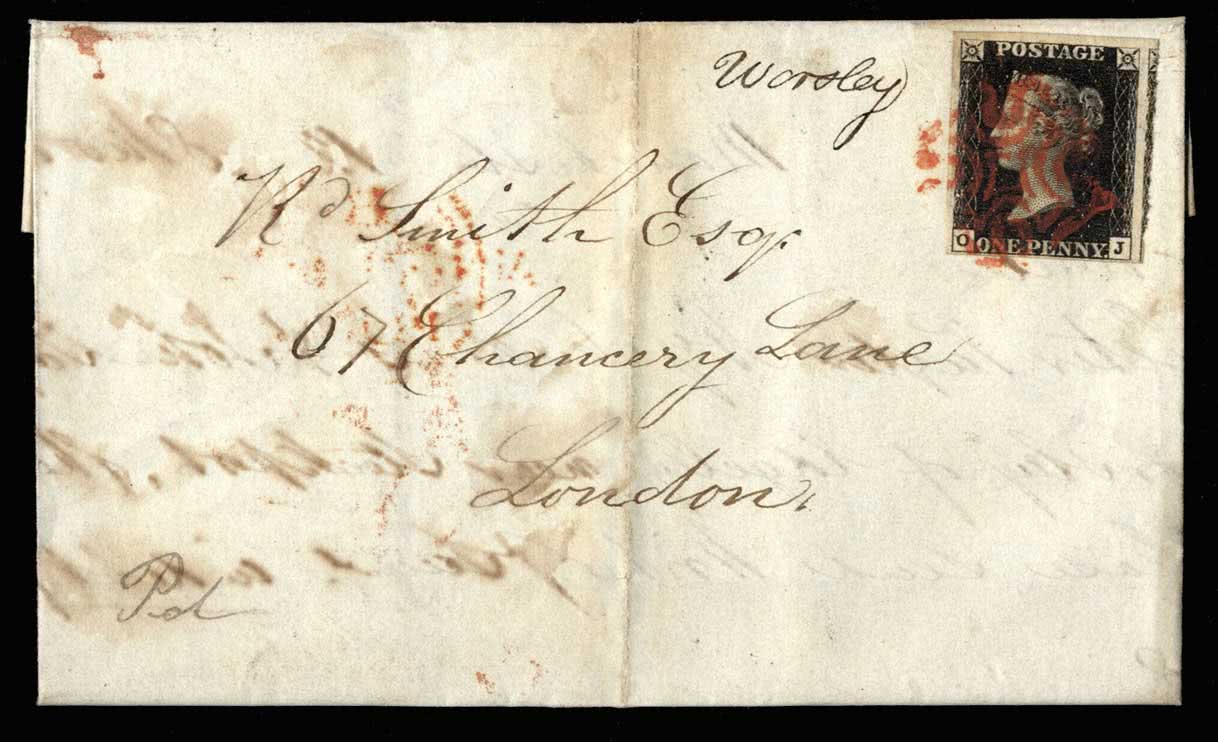 Worsley
POSTAGE
O ONE PENNY. J
Rd Smith Esqr.
67 Chancery Lane
London
Pd